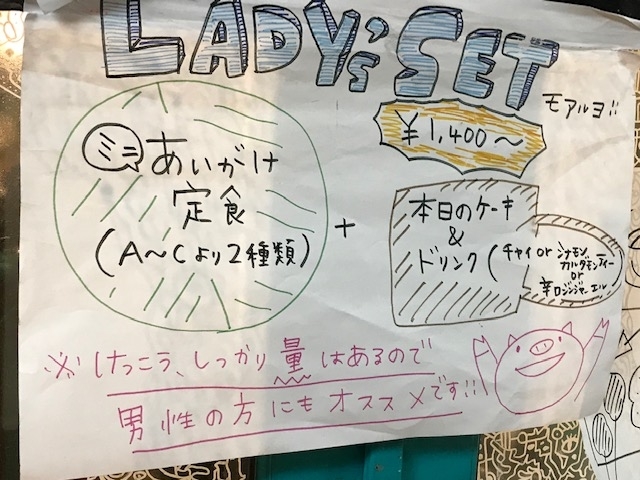 LADY'S SET
モアルヨ!!
¥1,400〜
ミニ あいがけ
定食
(A〜Cより2種類)
+
本日のケーキ
&
ドリンク(チャイ or シナモン
カルダモンティー
or
辛口ジンジャーエール
※けっこう、しっかり量はあるので
男性の方にもオススメです!!